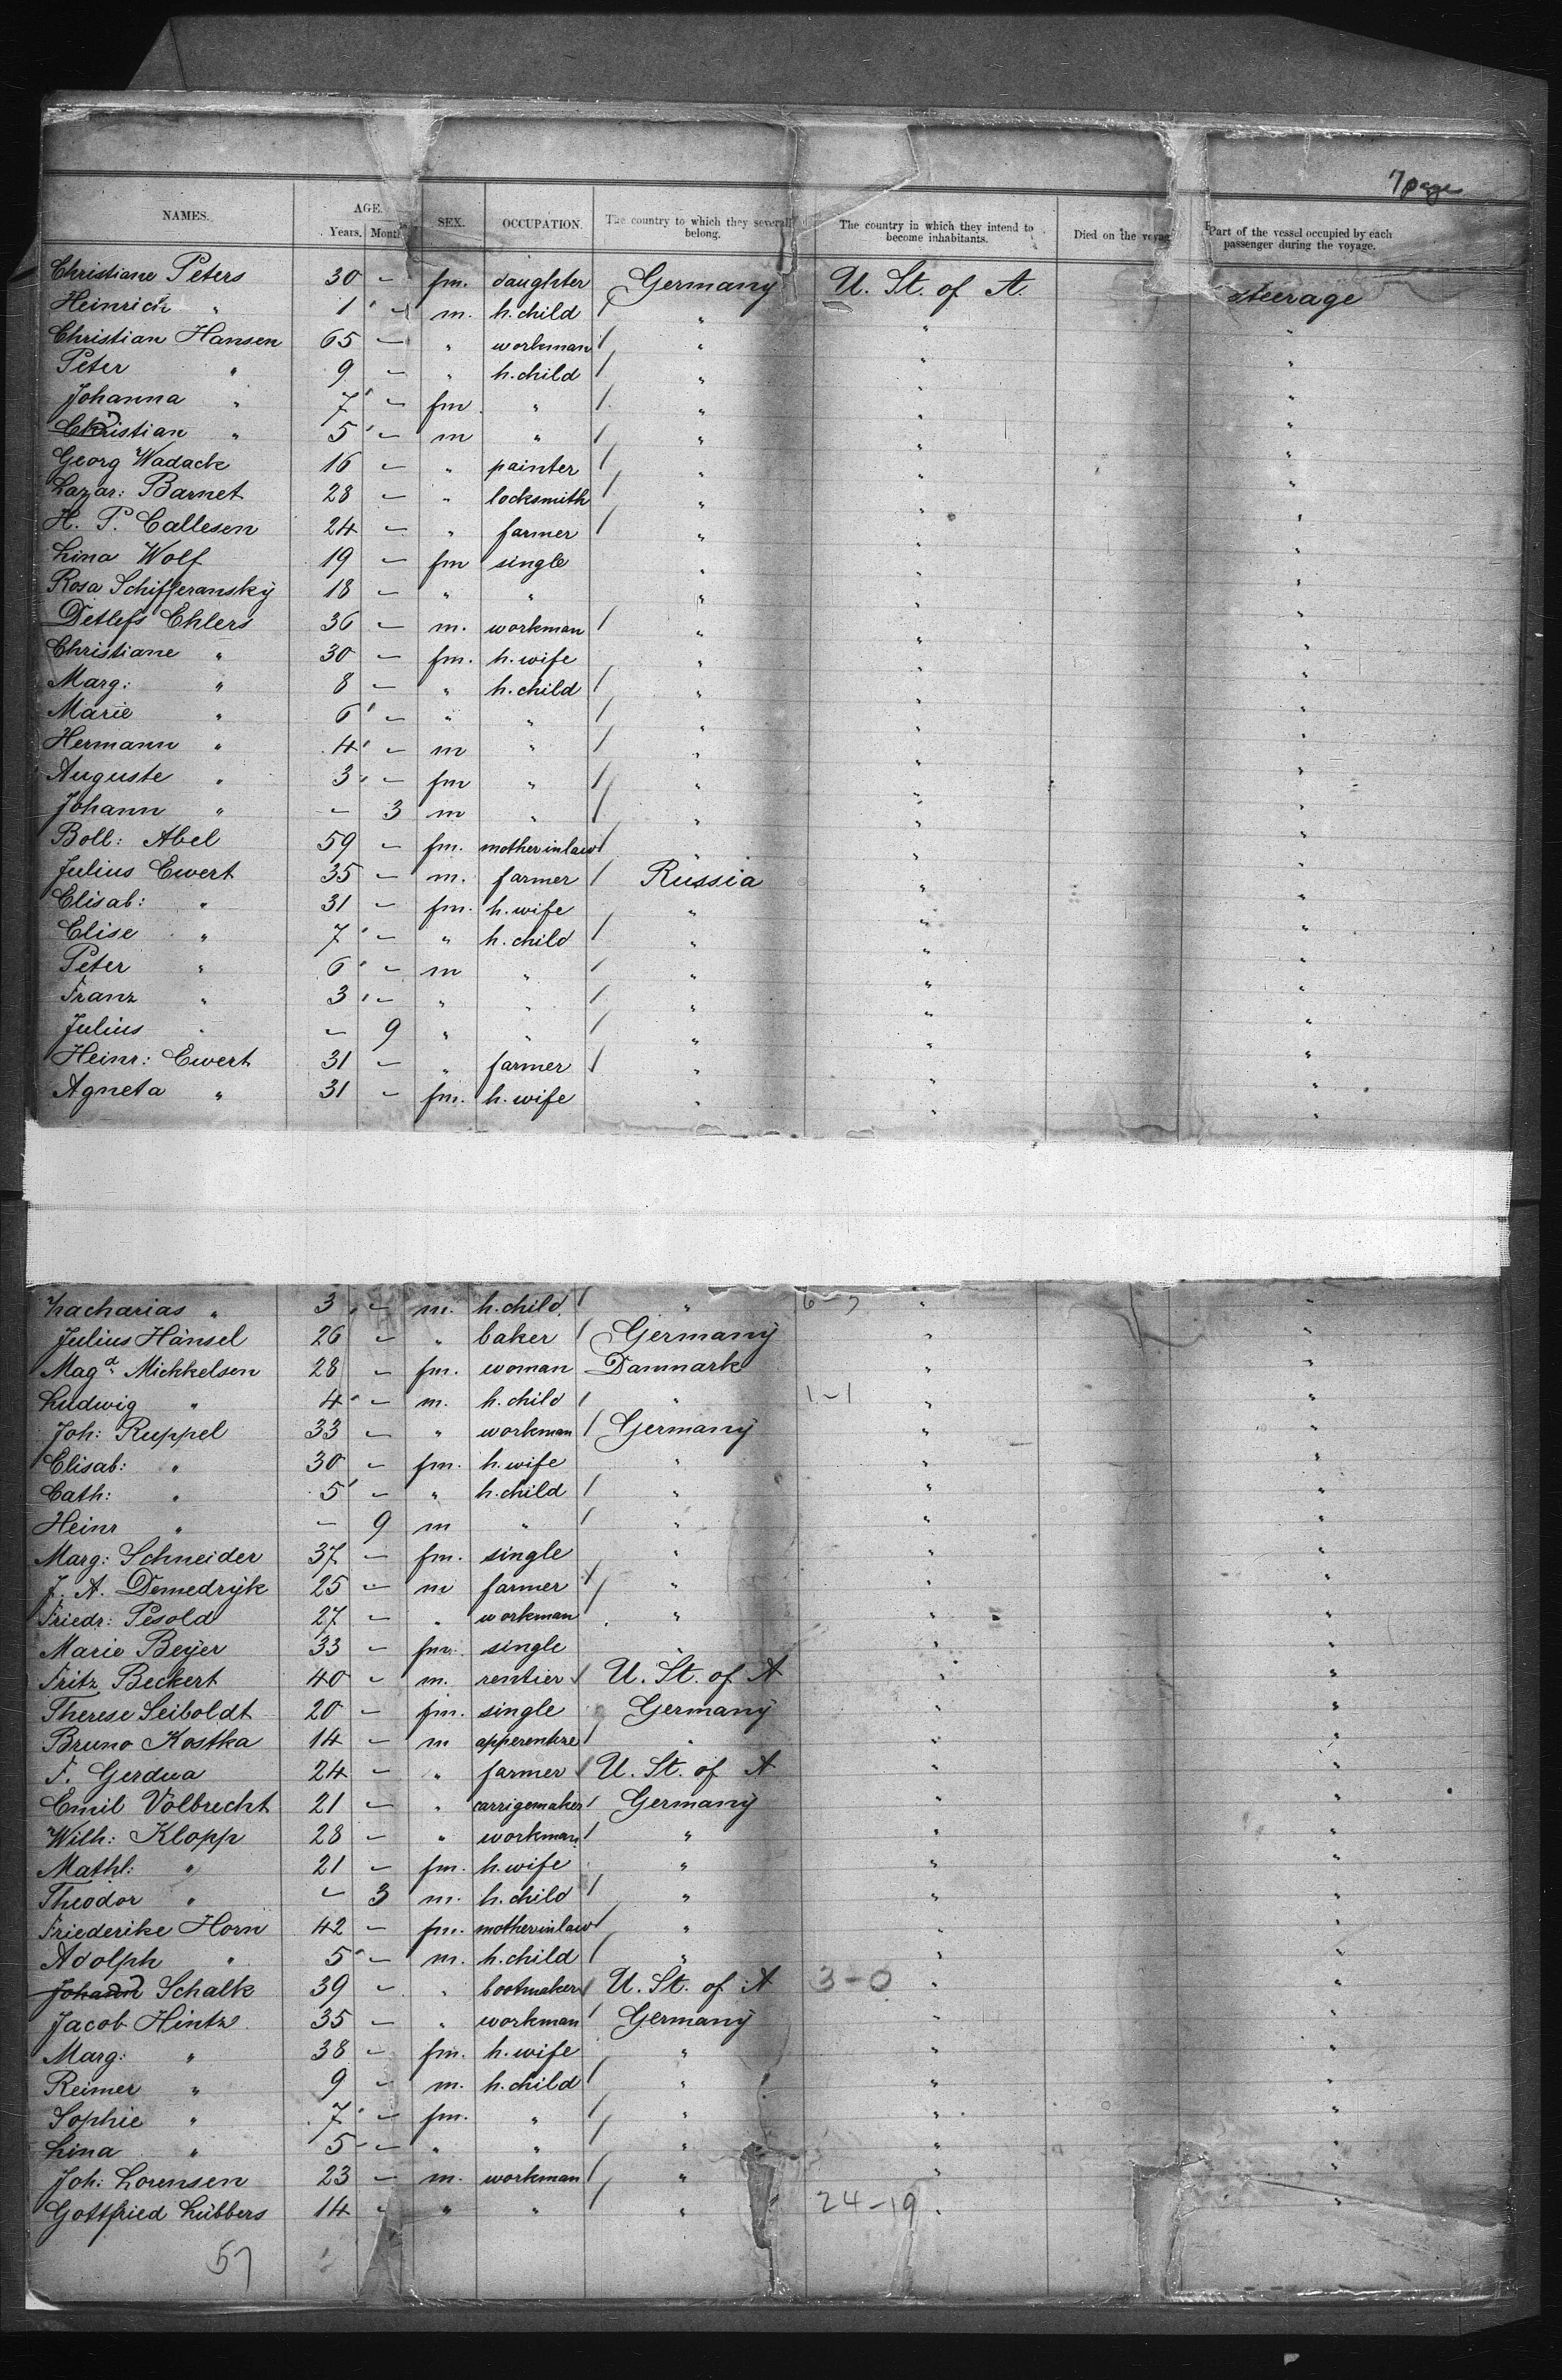 7 page
NAMES. AGE. SEX. OCCUPATION. The country to which they severally belong. The country in which they intend to become inhabitants. Died on the voyag Part of the vessel occupied by each passenger during the voyage.
Years. Month
Christiane Peters 30 – fm. daughter Germany U. St. of A. steerage
Heinrich " 1 – m. h. child / " " "
Christian Hansen 65 – " workman / " " "
Peter " 9 – " h. child / " " "
Johanna " 7 – fm " / " " "
Christian " 5 – m " / " " "
Georg Wadack 16 – " painter / " " "
Lazar: Barnet 28 – " locksmith / " " "
H. P. Callesen 24 – " farmer / " " "
Lina Wolf 19 – fm single " " "
Rosa Schifferansky 18 – " " " " "
Detlefs Ehlers 36 – m. workman / " " "
Christiane " 30 – fm. h. wife " " "
Marg: " 8 – " h. child / " " "
Marie " 6 – " " / " " "
Hermann " 4 – m " / " " "
Auguste " 3 – fm " / " " "
Johann " – 3 m " / " " "
Boll: Abel 59 – fm. mother in law / " " "
Julius Ewert 35 – m. farmer / Russia " "
Elisab: " 31 – fm. h. wife " " "
Elise " 7 – " h. child / " " "
Peter " 6 – m " / " " "
Franz " 3 – " " / " " "
Julius " – 9 " " / " " "
Heinr: Ewert 31 – " farmer / " " "
Agneta " 31 – fm. h. wife " " "
Zacharias " 3 – m. h. child. / " 6–7 " "
Julius Hänsel 26 – " baker / Germany " "
Magd. Michkelsen 28 – fm. woman Danmark " "
Ludwig " 4 – m. h. child / " 1–1 " "
Joh: Ruppel 33 – " workman / Germany " "
Elisab: " 30 – fm. h. wife " " "
Cath: " 5 – " h. child / " " "
Heinr " – 9 m " / " " "
Marg: Schneider 37 – fm. single " " "
J. A. Demedryk 25 – m farmer / " " "
Friedr: Pesold 27 – " workman / " " "
Marie Beyer 33 – fm. single " " "
Fritz Beckert 40 – m. rentier / U. St. of A " "
Therese Seiboldt 20 – fm. single Germany " "
Bruno Kostka 14 – m apperentice / " " "
F. Gerdua 24 – " farmer / U. St. of A " "
Emil Volbrecht 21 – " carrigemaker / Germany " "
Wilh: Klopp 28 – " workman / " " "
Mathl: " 21 – fm. h. wife " " "
Theodor " – 3 m. h. child / " " "
Friederike Horn 42 – fm. mother in law / " " "
Adolph " 5 – m. h. child / " " "
Johann Schalk 39 – " bootmaker / U. St. of A 3–0 " "
Jacob Hintz 35 – " workman / Germany " "
Marg: " 38 – fm. h. wife " " "
Reimer " 9 – m. h. child / " " "
Sophie " 7 – fm. " / " " "
Lina " 5 – " " / " " "
Joh: Lorensen 23 – m. workman / " " "
Gottfried Lübbers 14 – " " / " 24–19 " "
57